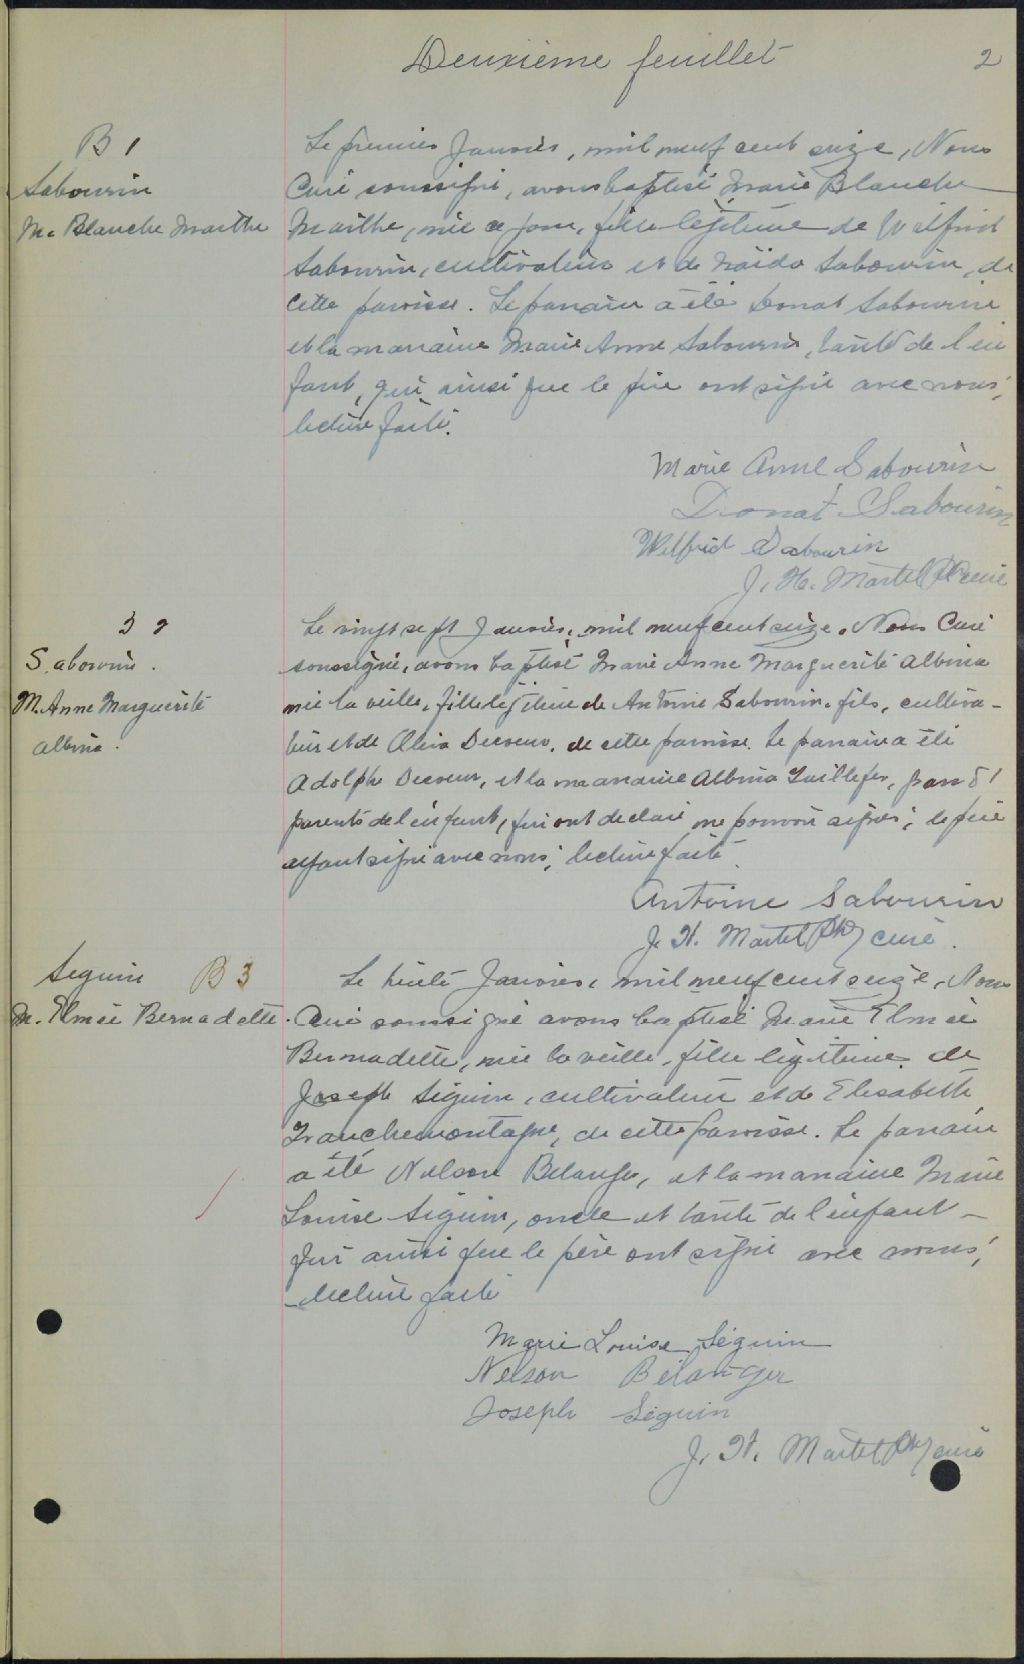 Deuxième feuillet
2
B 1
Sabourin
M. Blanche Marthe
Le premier Janvier, mil neuf cent seize, Nous
Curé soussigné, avons baptisé Marie Blanche
Marthe, née ce jour, fille légitime de Wilfrid
Sabourin, cultivateur et de Sabourin, de
cette paroisse. Le parrain a été Donat Sabourin
et la marraine Marie Anne Sabourin, tante de l'en
fant, qui ainsi que le père ont signé avec nous,
lecture faite.
Marie Anne Sabourin
Donat Sabourin
Wilfrid Sabourin
J. H. Martel Ptre curé
B 2
Sabourin.
M. Anne Marguerite
Albina.
Le vingt sept Janvier, mil neuf cent seize, Nous Curé
soussigné, avons baptisé Marie Anne Marguerite Albina
née la veille, fille légitime de Antoine Sabourin, fils, cultiva-
teur et de Decoeur, de cette paroisse. Le parrain a été
Adolphe Decoeur, et la marraine Albina Taillefer, grands
parents de l'enfant, qui ont declaré ne pouvoir signer; le père
ayant signé avec nous; lecture faite.
Antoine Sabourin
J. H. Martel Ptre curé.
Seguin B 3
M. Elmée Bernadette.
Le trente Janvier, mil neuf cent seize, Nous
Curé soussigné avons baptisé Marie Elmée
Bernadette, née la veille, fille légitime de
Joseph Séguin, cultivateur et de Elisabeth
Franchemontagne, de cette paroisse. Le parrain
a été Nelson Belanger, et la marraine Marie
Louise Séguin, oncle et tante de l'enfant -
qui ainsi que le père ont signé avec nous;
lecture faite
Marie Louise Séguin
Nelson Bélanger
Joseph Séguin
J. H. Martel Ptre curé